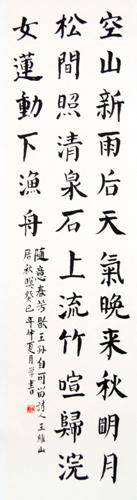 空山新雨后天氣晚来秋明月
松間照清泉石上流竹喧歸浣
女蓮動下漁舟
隨意春芳歇王孙自可留詩人王維山
居秋暝癸巳年仲夏月學書